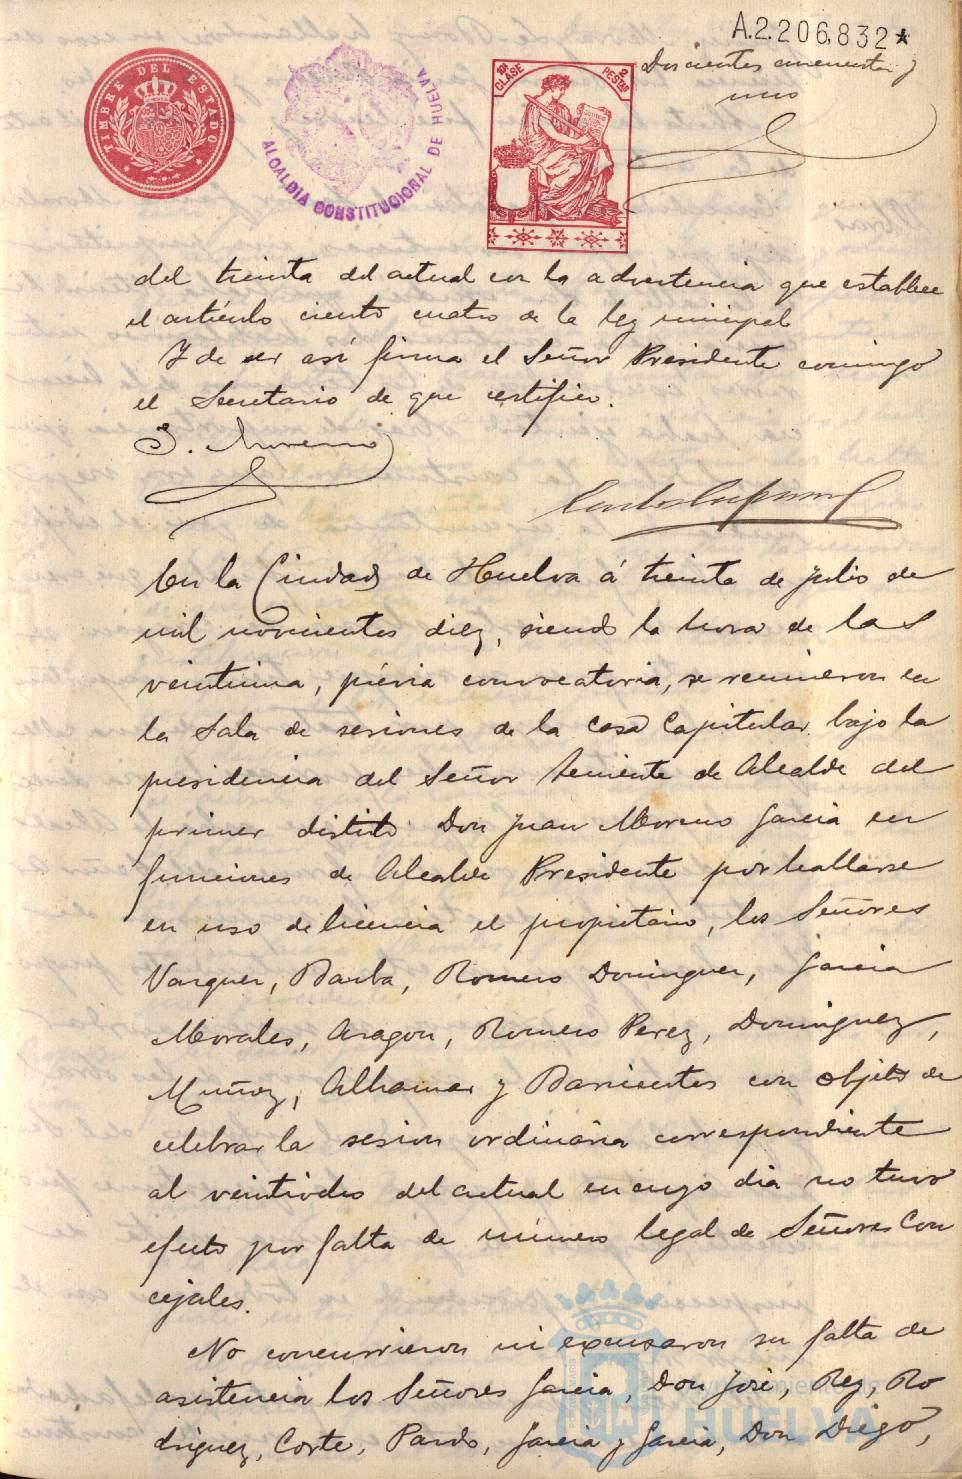 A.2.206,832*
Doscientos cincuenta y
uno
TIMBRE DEL ESTADO
ALCALDIA CONSTITUCIONAL DE HUELVA
10ª CLASE
2 PESETAS
del treinta del actual con la advertencia que establece
el artículo ciento cuatro de la ley municipal
Y de ser así firma el Señor Presidente conmigo
el Secretario de que certifico.
J. Moreno
En la Ciudad de Huelva á treinta de julio de
mil novecientos diez, siendo la hora de las
veintiuna, prévia convocatoria, se reunieron en
la Sala de sesiones de la casa Capitular bajo la
presidencia del Señor Teniente de Alcalde del
primer distrito Don Juan Moreno Garcia en
funciones de Alcalde Presidente por hallarse
en uso de licencia el propietario, los Señores
Vazquez, Barba, Romero Dominguez, Garcia
Morales, Aragon, Romero Perez, Dominguez,
Muñoz, Alhamar y Barrientos con objeto de
celebrar la sesion ordinaria correspondiente
al veintiocho del actual en cuyo dia no tuvo
efecto por falta de número legal de Señores Con
cejales.
No concurrieron ni excusaron su falta de
asistencia los Señores Garcia, Don José, Rey, Ro
driguez, Corte, Pardo, Garcia y Garcia, Don Diego,
Ayuntamiento de
HUELVA